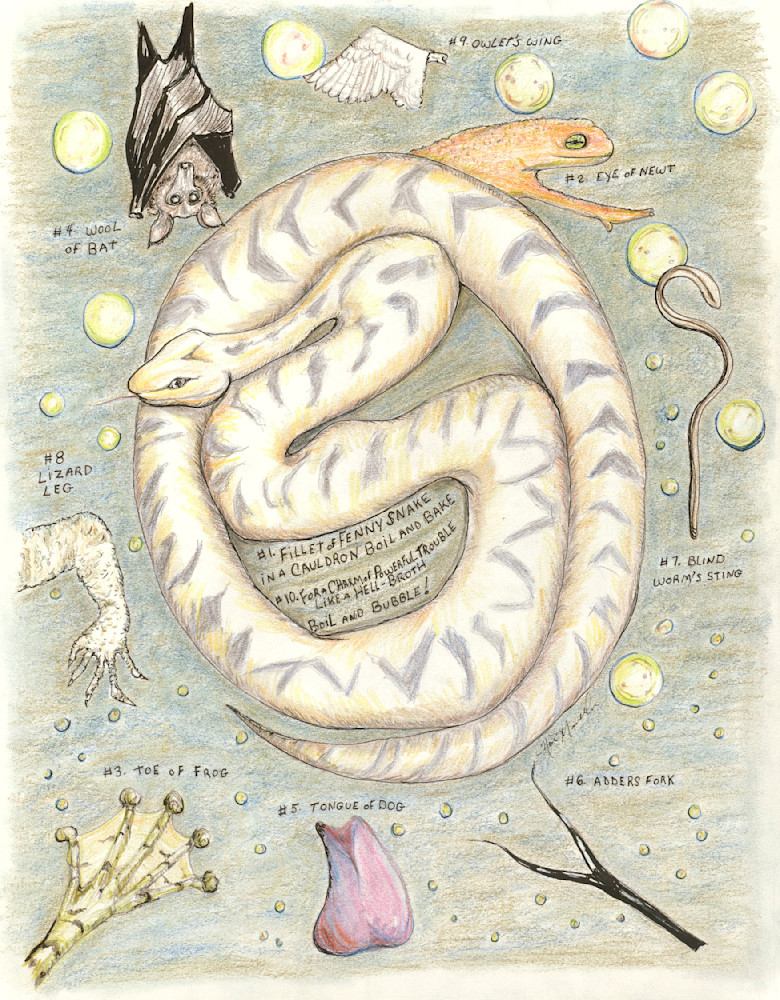 #9. OWLET'S WING
#2. EYE OF NEWT
#4. WOOL
OF BAT
#8
LIZARD
LEG
#1. FILLET OF FENNY SNAKE
IN A CAULDRON BOIL AND BAKE
#10. FOR A CHARM OF POWERFUL TROUBLE
LIKE A HELL-BROTH
BOIL AND BUBBLE!
#7. BLIND
WORM'S STING
#3. TOE OF FROG
#5. TONGUE OF DOG
#6. ADDERS FORK